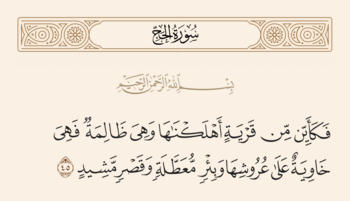 سُورَةُ الحَجِّ
بِسْمِ اللَّهِ الرَّحْمَٰنِ الرَّحِيمِ
فَكَأَيِّن مِّن قَرْيَةٍ أَهْلَكْنَٰهَا وَهِىَ ظَالِمَةٌ فَهِىَ
خَاوِيَةٌ عَلَىٰ عُرُوشِهَا وَبِئْرٍ مُّعَطَّلَةٍ وَقَصْرٍ مَّشِيدٍ ٤٥